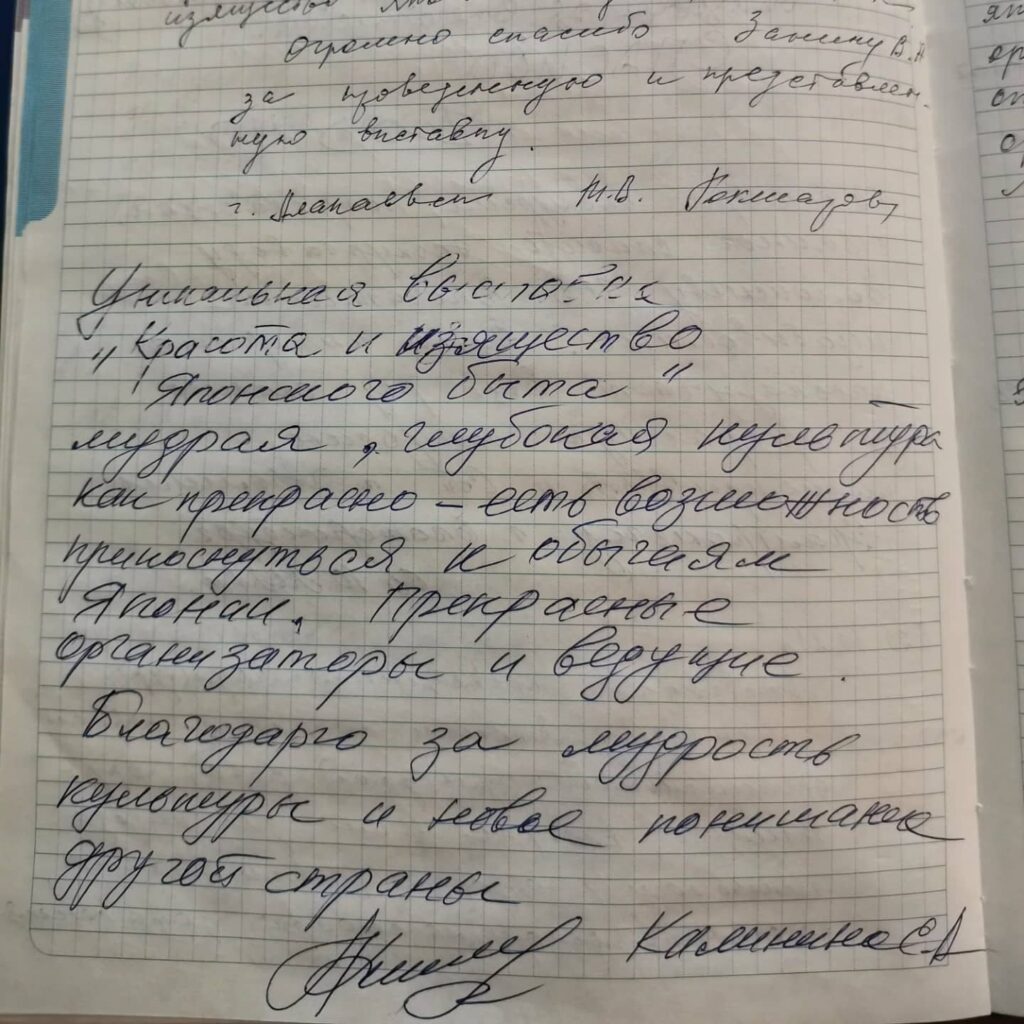 изящество
Огромно спасибо Занину В.А
за проведенную и представлен-
ную виставку.
г. Алапаевск М.В.
Уникальная выставка
"Красота и изящество
Японского быта"
мудрая, глубокая культура
как прекрасно – есть возможность
прикоснуться к обычаям
Японии. Прекрасные
организаторы и ведущие.
Благодарю за мудрость
культуры и новое понимание
другой страны
Калинина Е.А